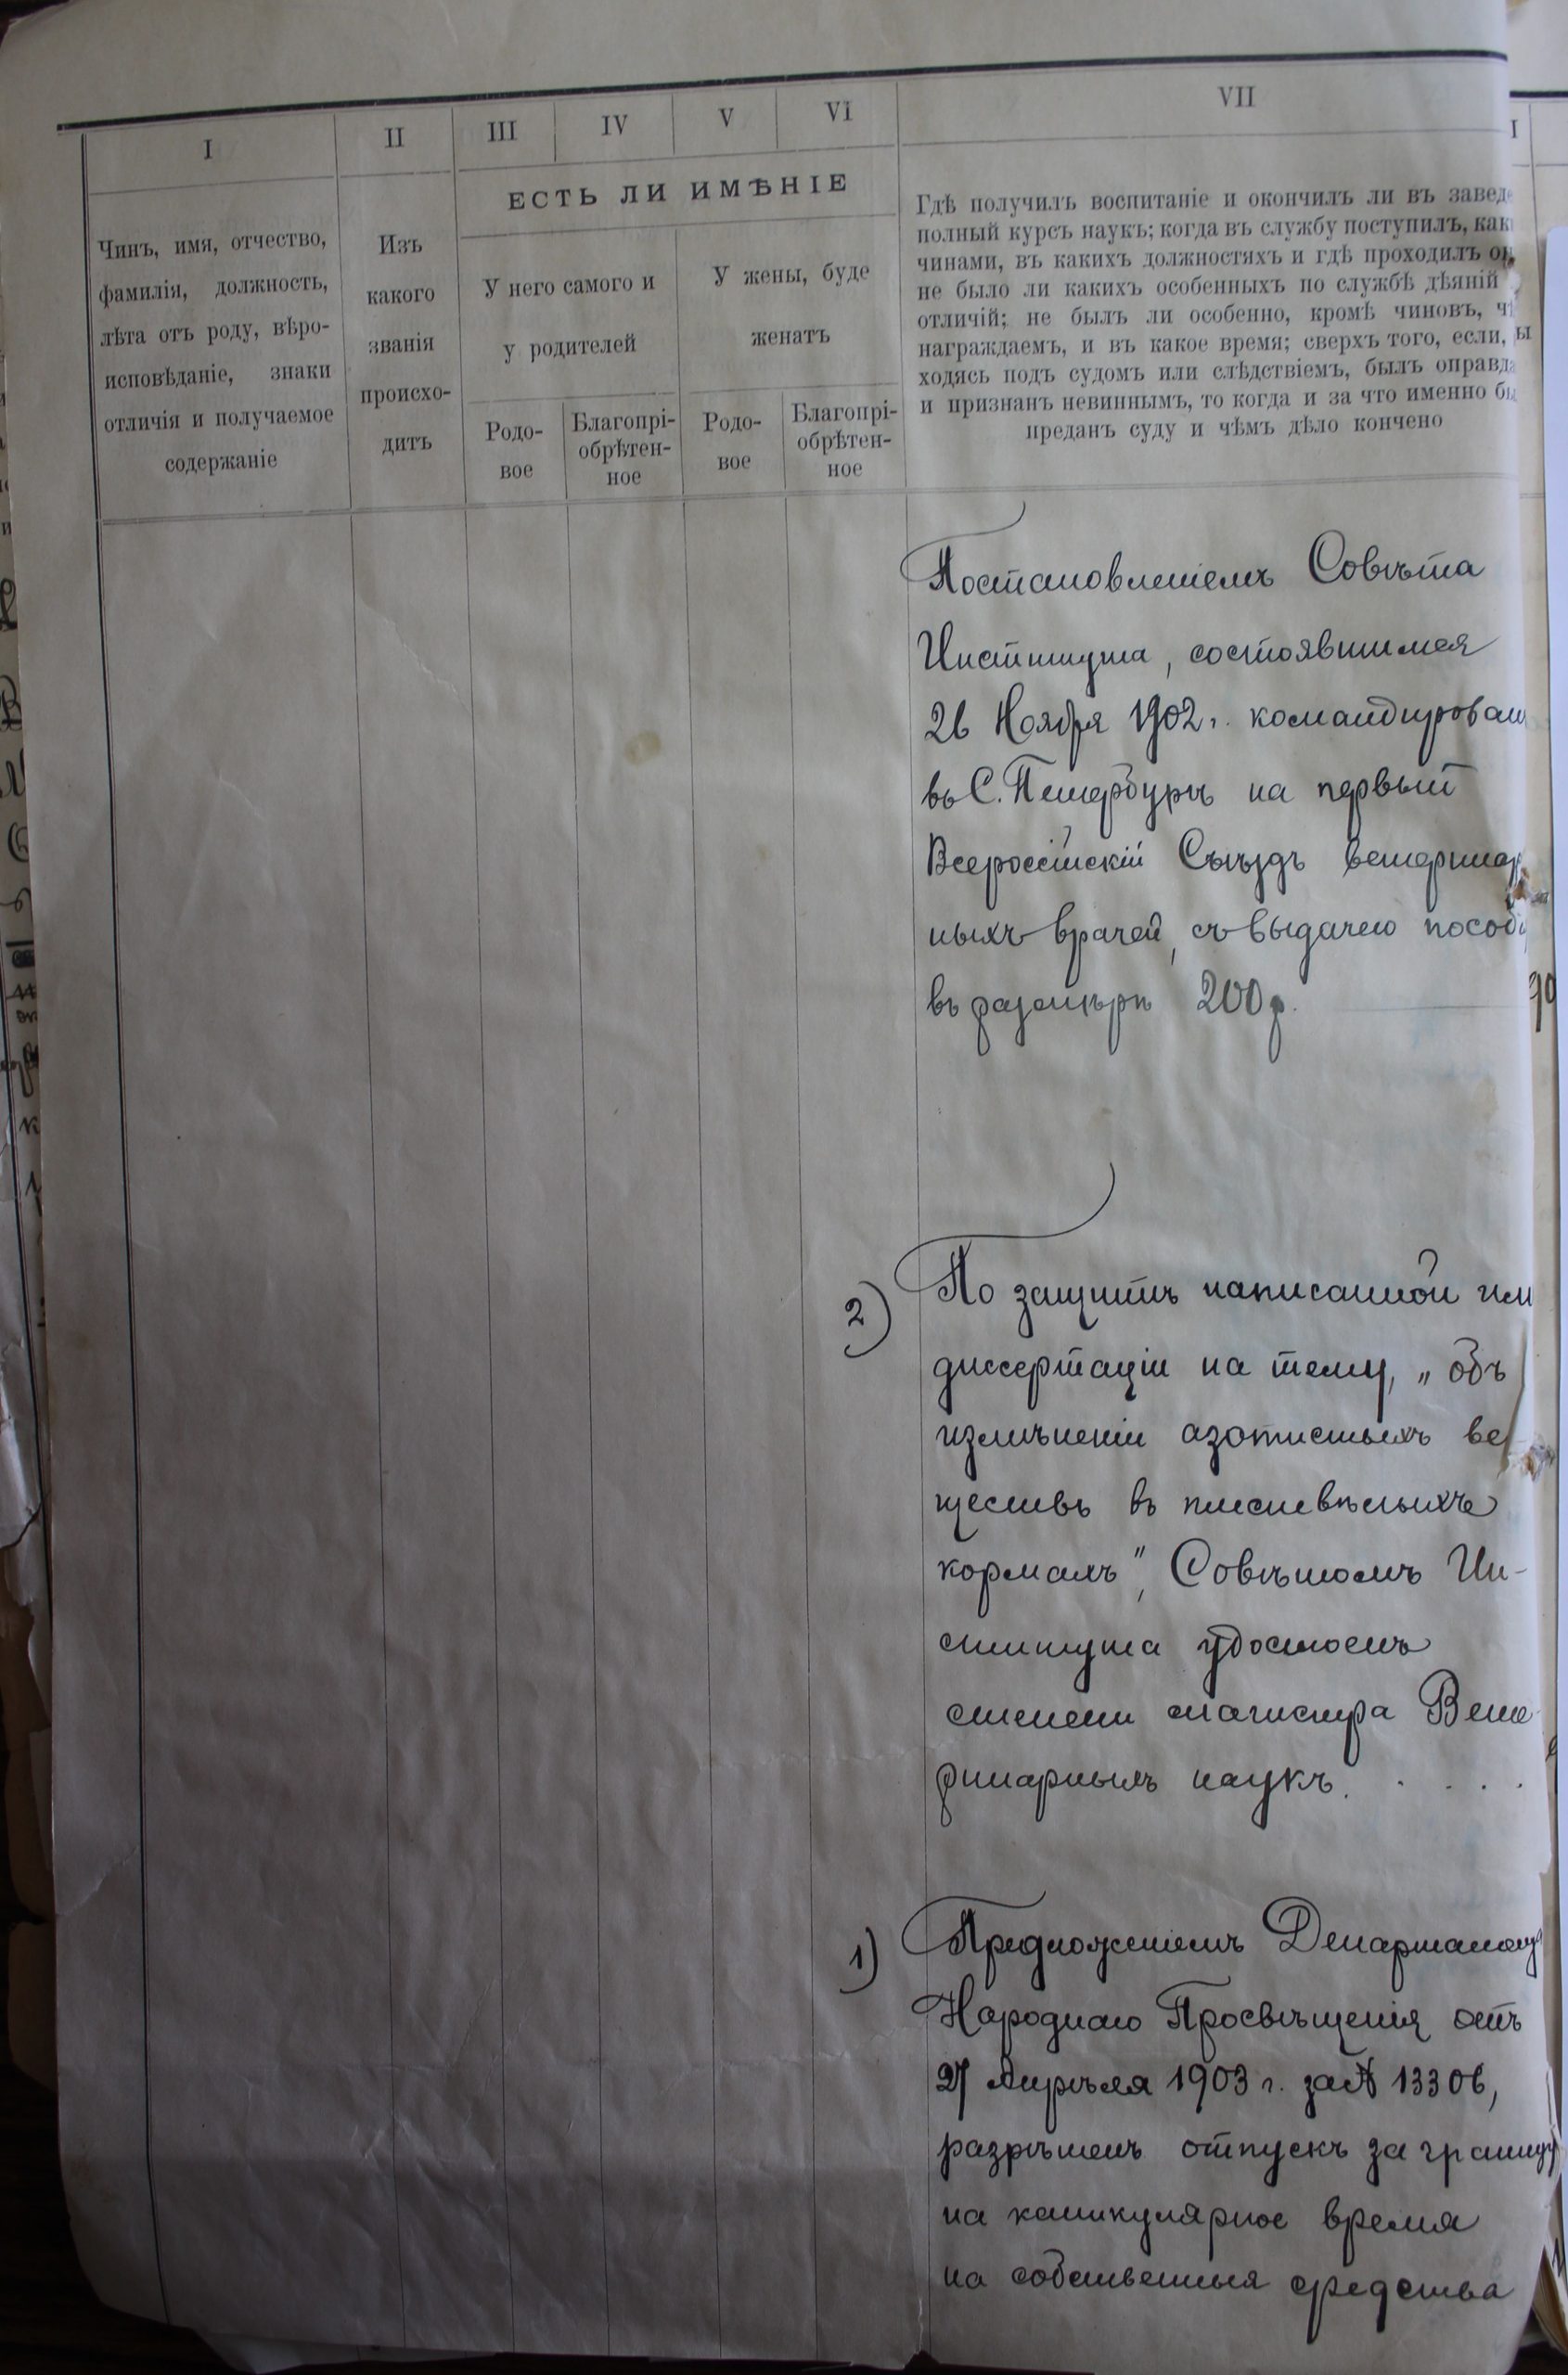 I
II
III
IV
V
VI
VII
Чинъ, имя, отчество,
фамилія, должность,
лѣта отъ роду, вѣро-
исповѣданіе, знаки
отличія и получаемое
содержаніе
Изъ
какого
званія
происхо-
дитъ
ЕСТЬ ЛИ ИМѢНІЕ
У него самого и
у родителей
У жены, буде
женатъ
Родо-
вое
Благопрі-
обрѣтен-
ное
Родо-
вое
Благопрі-
обрѣтен-
ное
Гдѣ получилъ воспитаніе и окончилъ ли въ завед
полный курсъ наукъ; когда въ службу поступилъ, как
чинами, въ какихъ должностяхъ и гдѣ проходилъ о
не было ли какихъ особенныхъ по службѣ дѣяній
отличій; не былъ ли особенно, кромѣ чиновъ, ч
награждаемъ, и въ какое время; сверхъ того, если,
ходясь подъ судомъ или слѣдствіемъ, былъ оправд
и признанъ невиннымъ, то когда и за что именно б
преданъ суду и чѣмъ дѣло кончено
Постановленіемъ Совѣта
Института, состоявшимся
26 Ноября 1902 г. командирован
въ С. Петербургъ на первый
Всероссійскій Съѣздъ ветеринар
ныхъ врачей, съ выдачею пособі
въ размѣрѣ 200 р.
2) По защитѣ написанной им
диссертаціи на тему, „объ
измѣненіи азотистыхъ ве
ществъ въ плесневѣлыхъ
кормахъ", Совѣтомъ Ин-
ститута удостоенъ
степени магистра Вете
ринарныхъ наукъ. . . . .
1) Предложеніемъ Департамент
Народнаго Просвѣщенія отъ
27 Апрѣля 1903 г. за № 13306,
разрѣшенъ отпускъ за границу
на каникулярное время
на собственныя средства